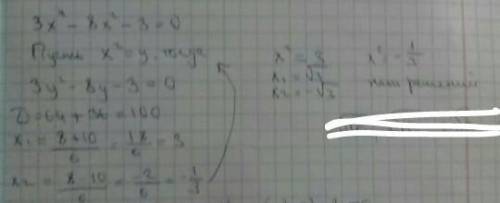 3x⁴ - 8x² - 3 = 0
Пусть x² = y, тогда
3y² - 8y - 3 = 0
D = 64 + 36 = 100
x₁ = (8+10)/6 = 18/6 = 3
x₂ = (8-10)/6 = -2/6 = -1/3
x² = 3
x₁ = √3
x₂ = -√3
x² = -1/3
нет решений